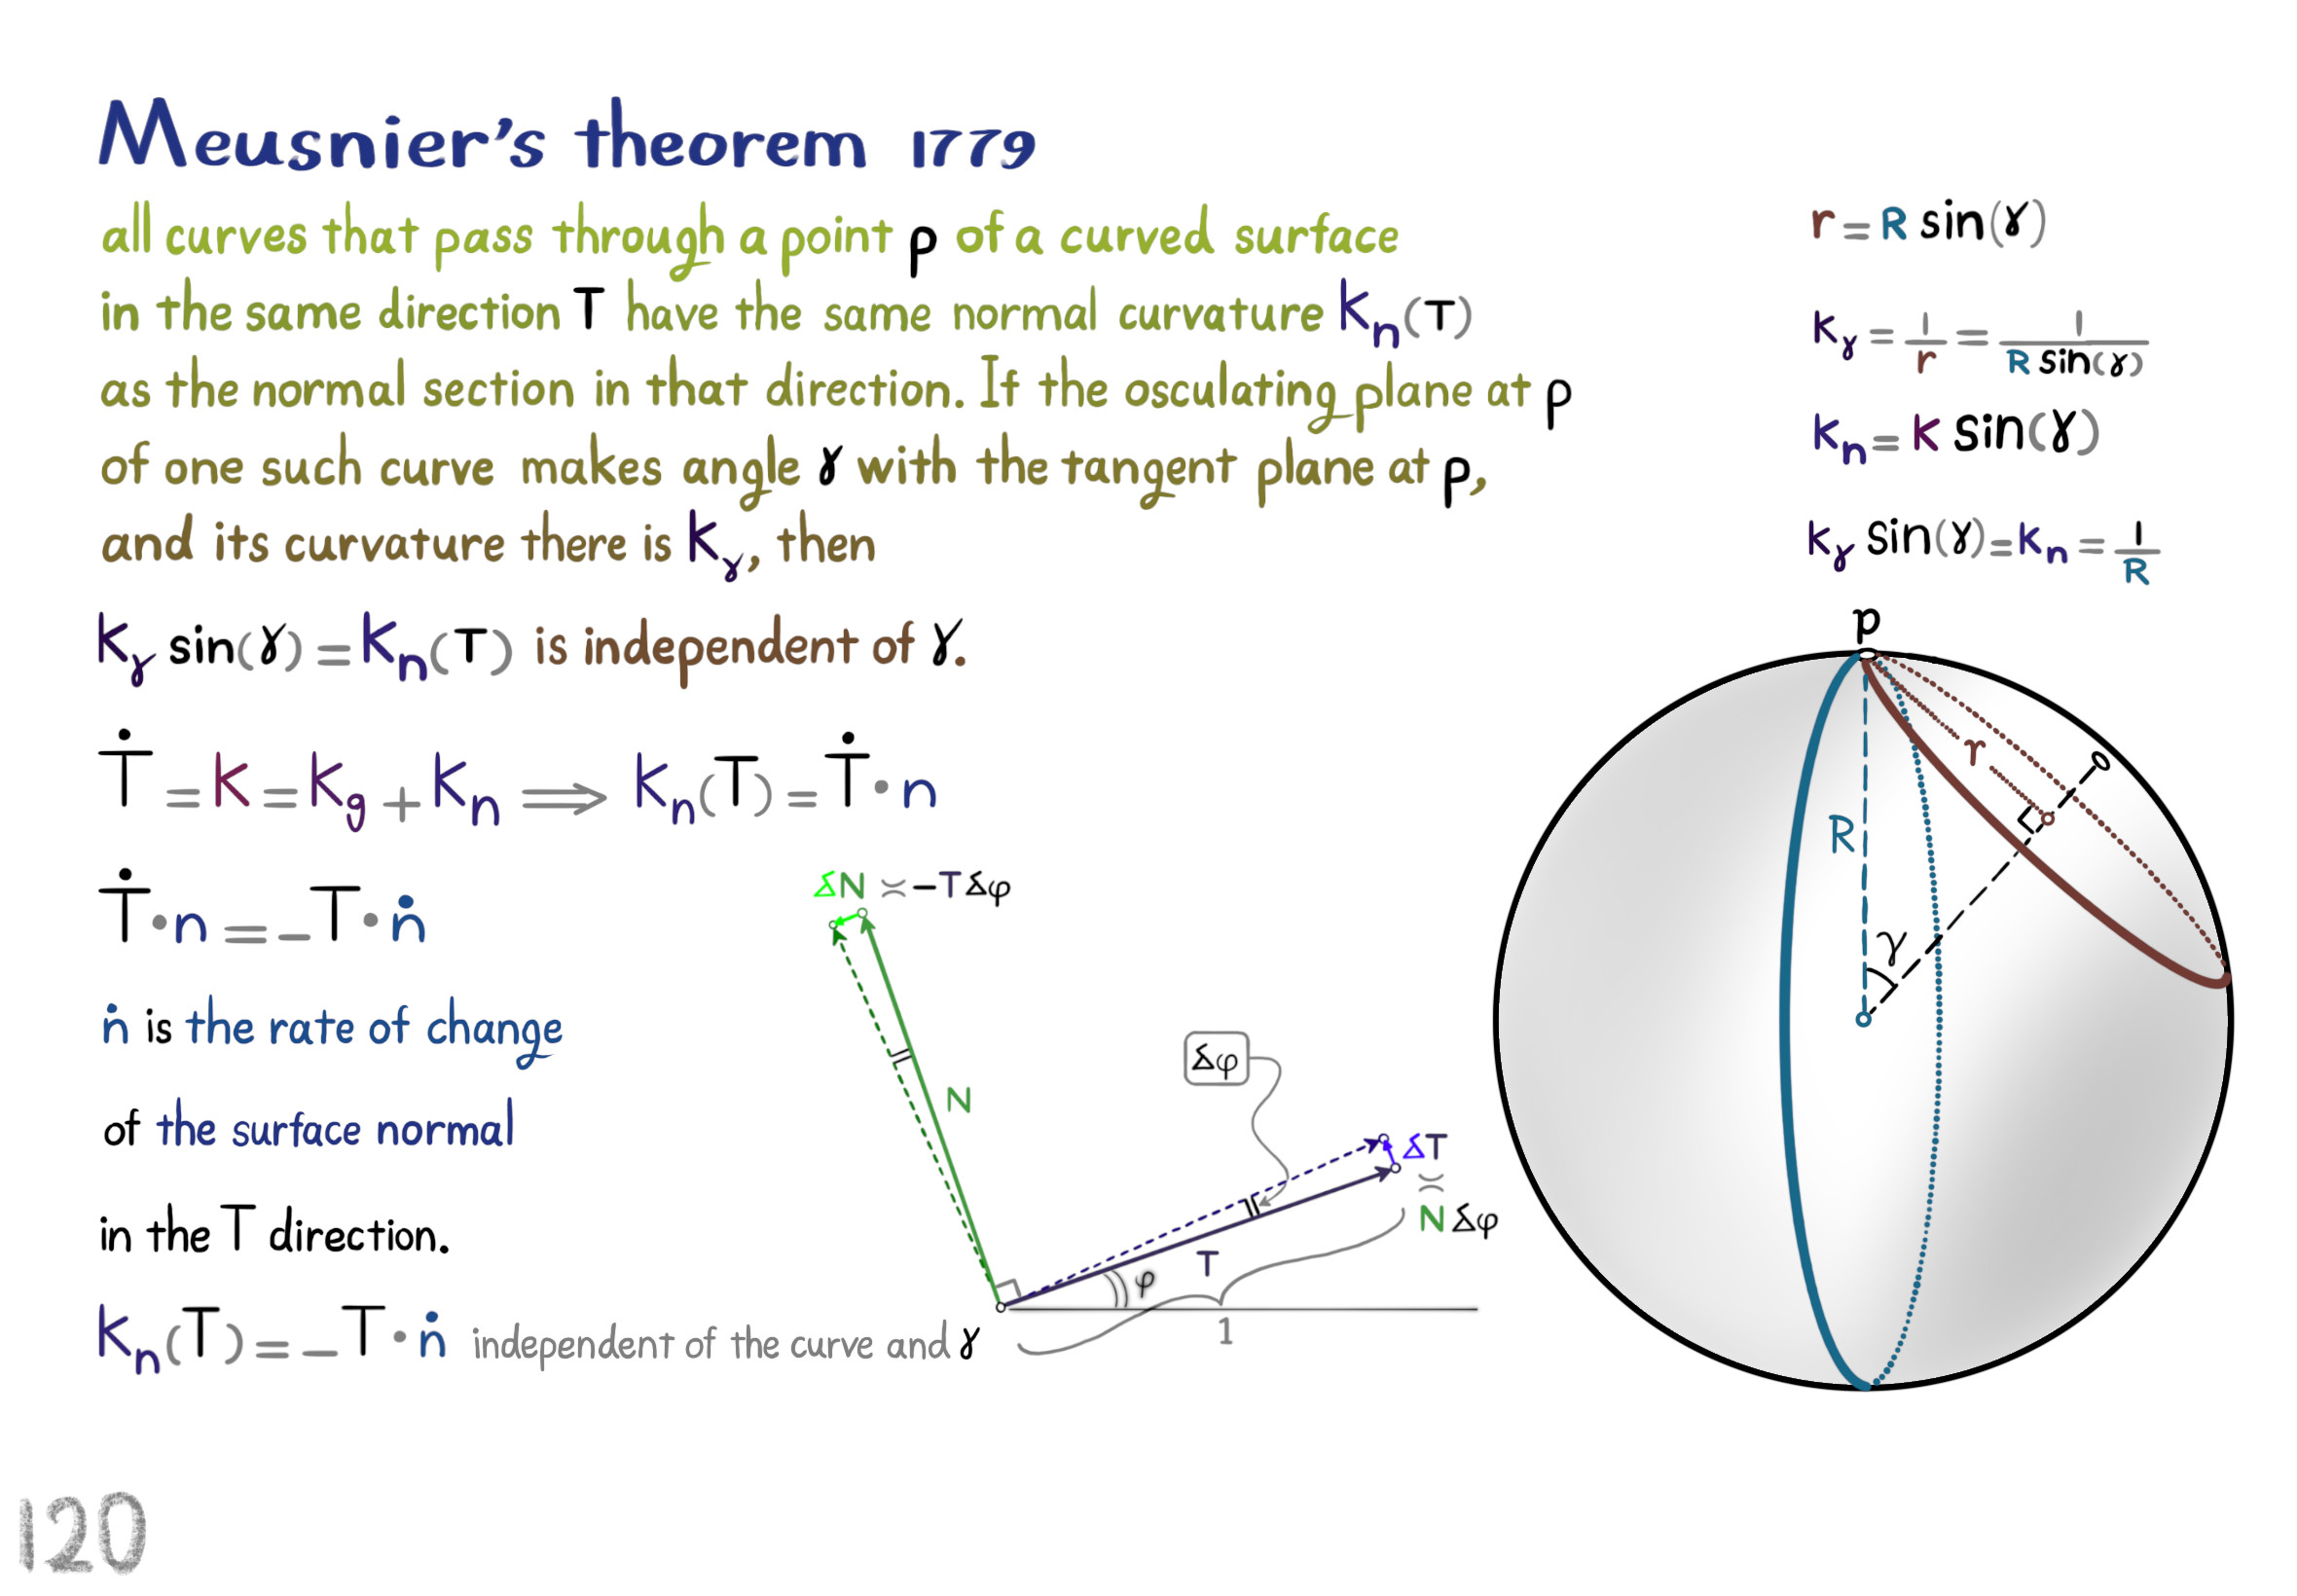 Meusnier's theorem 1779
all curves that pass through a point p of a curved surface
in the same direction T have the same normal curvature kₙ(T)
as the normal section in that direction. If the osculating plane at p
of one such curve makes angle γ with the tangent plane at p,
and its curvature there is kᵧ, then
kᵧ sin(γ) = kₙ(T) is independent of γ.
Ṫ = k = k_g + kₙ ⟹ kₙ(T) = Ṫ • n
Ṫ • n = −T • ṅ
ṅ is the rate of change
of the surface normal
in the T direction.
kₙ(T) = −T • ṅ independent of the curve and γ
δN ≍ −T δφ
N
δφ
δT
≍
N δφ
T
φ
1
r = R sin(γ)
kᵧ = 1/r = 1/(R sin(γ))
kₙ = k sin(γ)
kᵧ sin(γ) = kₙ = 1/R
p
r
R
γ
120